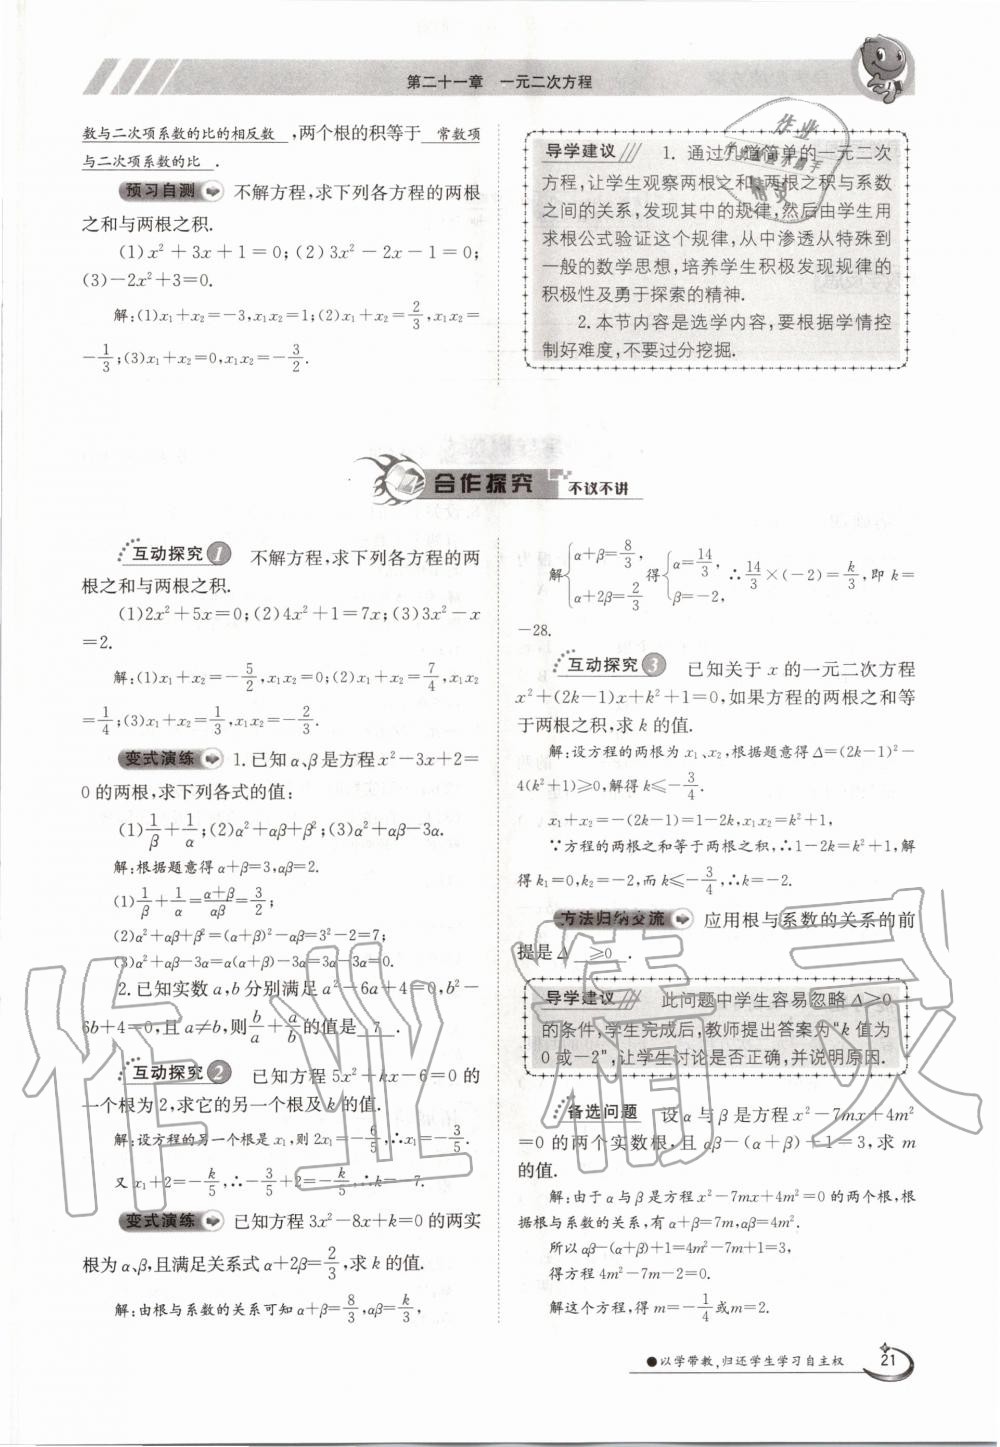 第二十一章 一元二次方程
数与二次项系数的比的相反数 ,两个根的积等于 常数项
与二次项系数的比 .
预习自测 不解方程,求下列各方程的两根
之和与两根之积.
(1)x²+3x+1=0;(2)3x²-2x-1=0;
(3)-2x²+3=0.
解:(1)x₁+x₂=-3,x₁x₂=1;(2)x₁+x₂=2/3,x₁x₂=
-1/3;(3)x₁+x₂=0,x₁x₂=-3/2.
导学建议 1. 通过几道简单的一元二次
方程,让学生观察两根之和、两根之积与系数
之间的关系,发现其中的规律,然后由学生用
求根公式验证这个规律,从中渗透从特殊到
一般的数学思想,培养学生积极发现规律的
积极性及勇于探索的精神.
2. 本节内容是选学内容,要根据学情控
制好难度,不要过分挖掘.
合作探究 不议不讲
互动探究1 不解方程,求下列各方程的两
根之和与两根之积.
(1)2x²+5x=0;(2)4x²+1=7x;(3)3x²-x
=2.
解:(1)x₁+x₂=-5/2,x₁x₂=0;(2)x₁+x₂=7/4,x₁x₂
=1/4;(3)x₁+x₂=1/3,x₁x₂=-2/3.
变式演练 1.已知α、β是方程x²-3x+2=
0的两根,求下列各式的值:
(1)1/β+1/α;(2)α²+αβ+β²;(3)α²+αβ-3α.
解:根据题意得α+β=3,αβ=2.
(1)1/β+1/α=(α+β)/αβ=3/2;
(2)α²+αβ+β²=(α+β)²-αβ=3²-2=7;
(3)α²+αβ-3α=α(α+β)-3α=3α-3α=0.
2.已知实数a,b分别满足a²-6a+4=0,b²-
6b+4=0,且a≠b,则b/a+a/b的值是 7 .
互动探究2 已知方程5x²+kx-6=0的
一个根为2,求它的另一个根及k的值.
解:设方程的另一个根是x₁,则2x₁=-6/5,∴x₁=-3/5.
又x₁+2=-k/5,∴-3/5+2=-k/5,∴k=-7.
变式演练 已知方程3x²-8x+k=0的两实
根为α、β,且满足关系式α+2β=2/3,求k的值.
解:由根与系数的关系可知α+β=8/3,αβ=k/3,
解{α+β=8/3, α+2β=2/3 得{α=14/3, β=-2, ∴14/3×(-2)=k/3,即k=
-28.
互动探究3 已知关于x的一元二次方程
x²+(2k-1)x+k²+1=0,如果方程的两根之和等
于两根之积,求k的值.
解:设方程的两根为x₁、x₂,根据题意得Δ=(2k-1)²-
4(k²+1)≥0,解得k≤-3/4.
x₁+x₂=-(2k-1)=1-2k,x₁x₂=k²+1,
∵方程的两根之和等于两根之积,∴1-2k=k²+1,解
得k₁=0,k₂=-2,而k≤-3/4,∴k=-2.
方法归纳交流 应用根与系数的关系的前
提是Δ ≥0 .
导学建议 此问题中学生容易忽略Δ≥0
的条件,学生完成后,教师提出答案为"k值为
0或-2",让学生讨论是否正确,并说明原因.
备选问题 设α与β是方程x²-7mx+4m²
=0的两个实数根,且αβ-(α+β)+1=3,求m
的值.
解:由于α与β是方程x²-7mx+4m²=0的两个根,根
据根与系数的关系,有α+β=7m,αβ=4m².
所以αβ-(α+β)+1=4m²-7m+1=3,
得方程4m²-7m-2=0.
解这个方程,得m=-1/4或m=2.
●以学带教,归还学生学习自主权 21
作业精灵